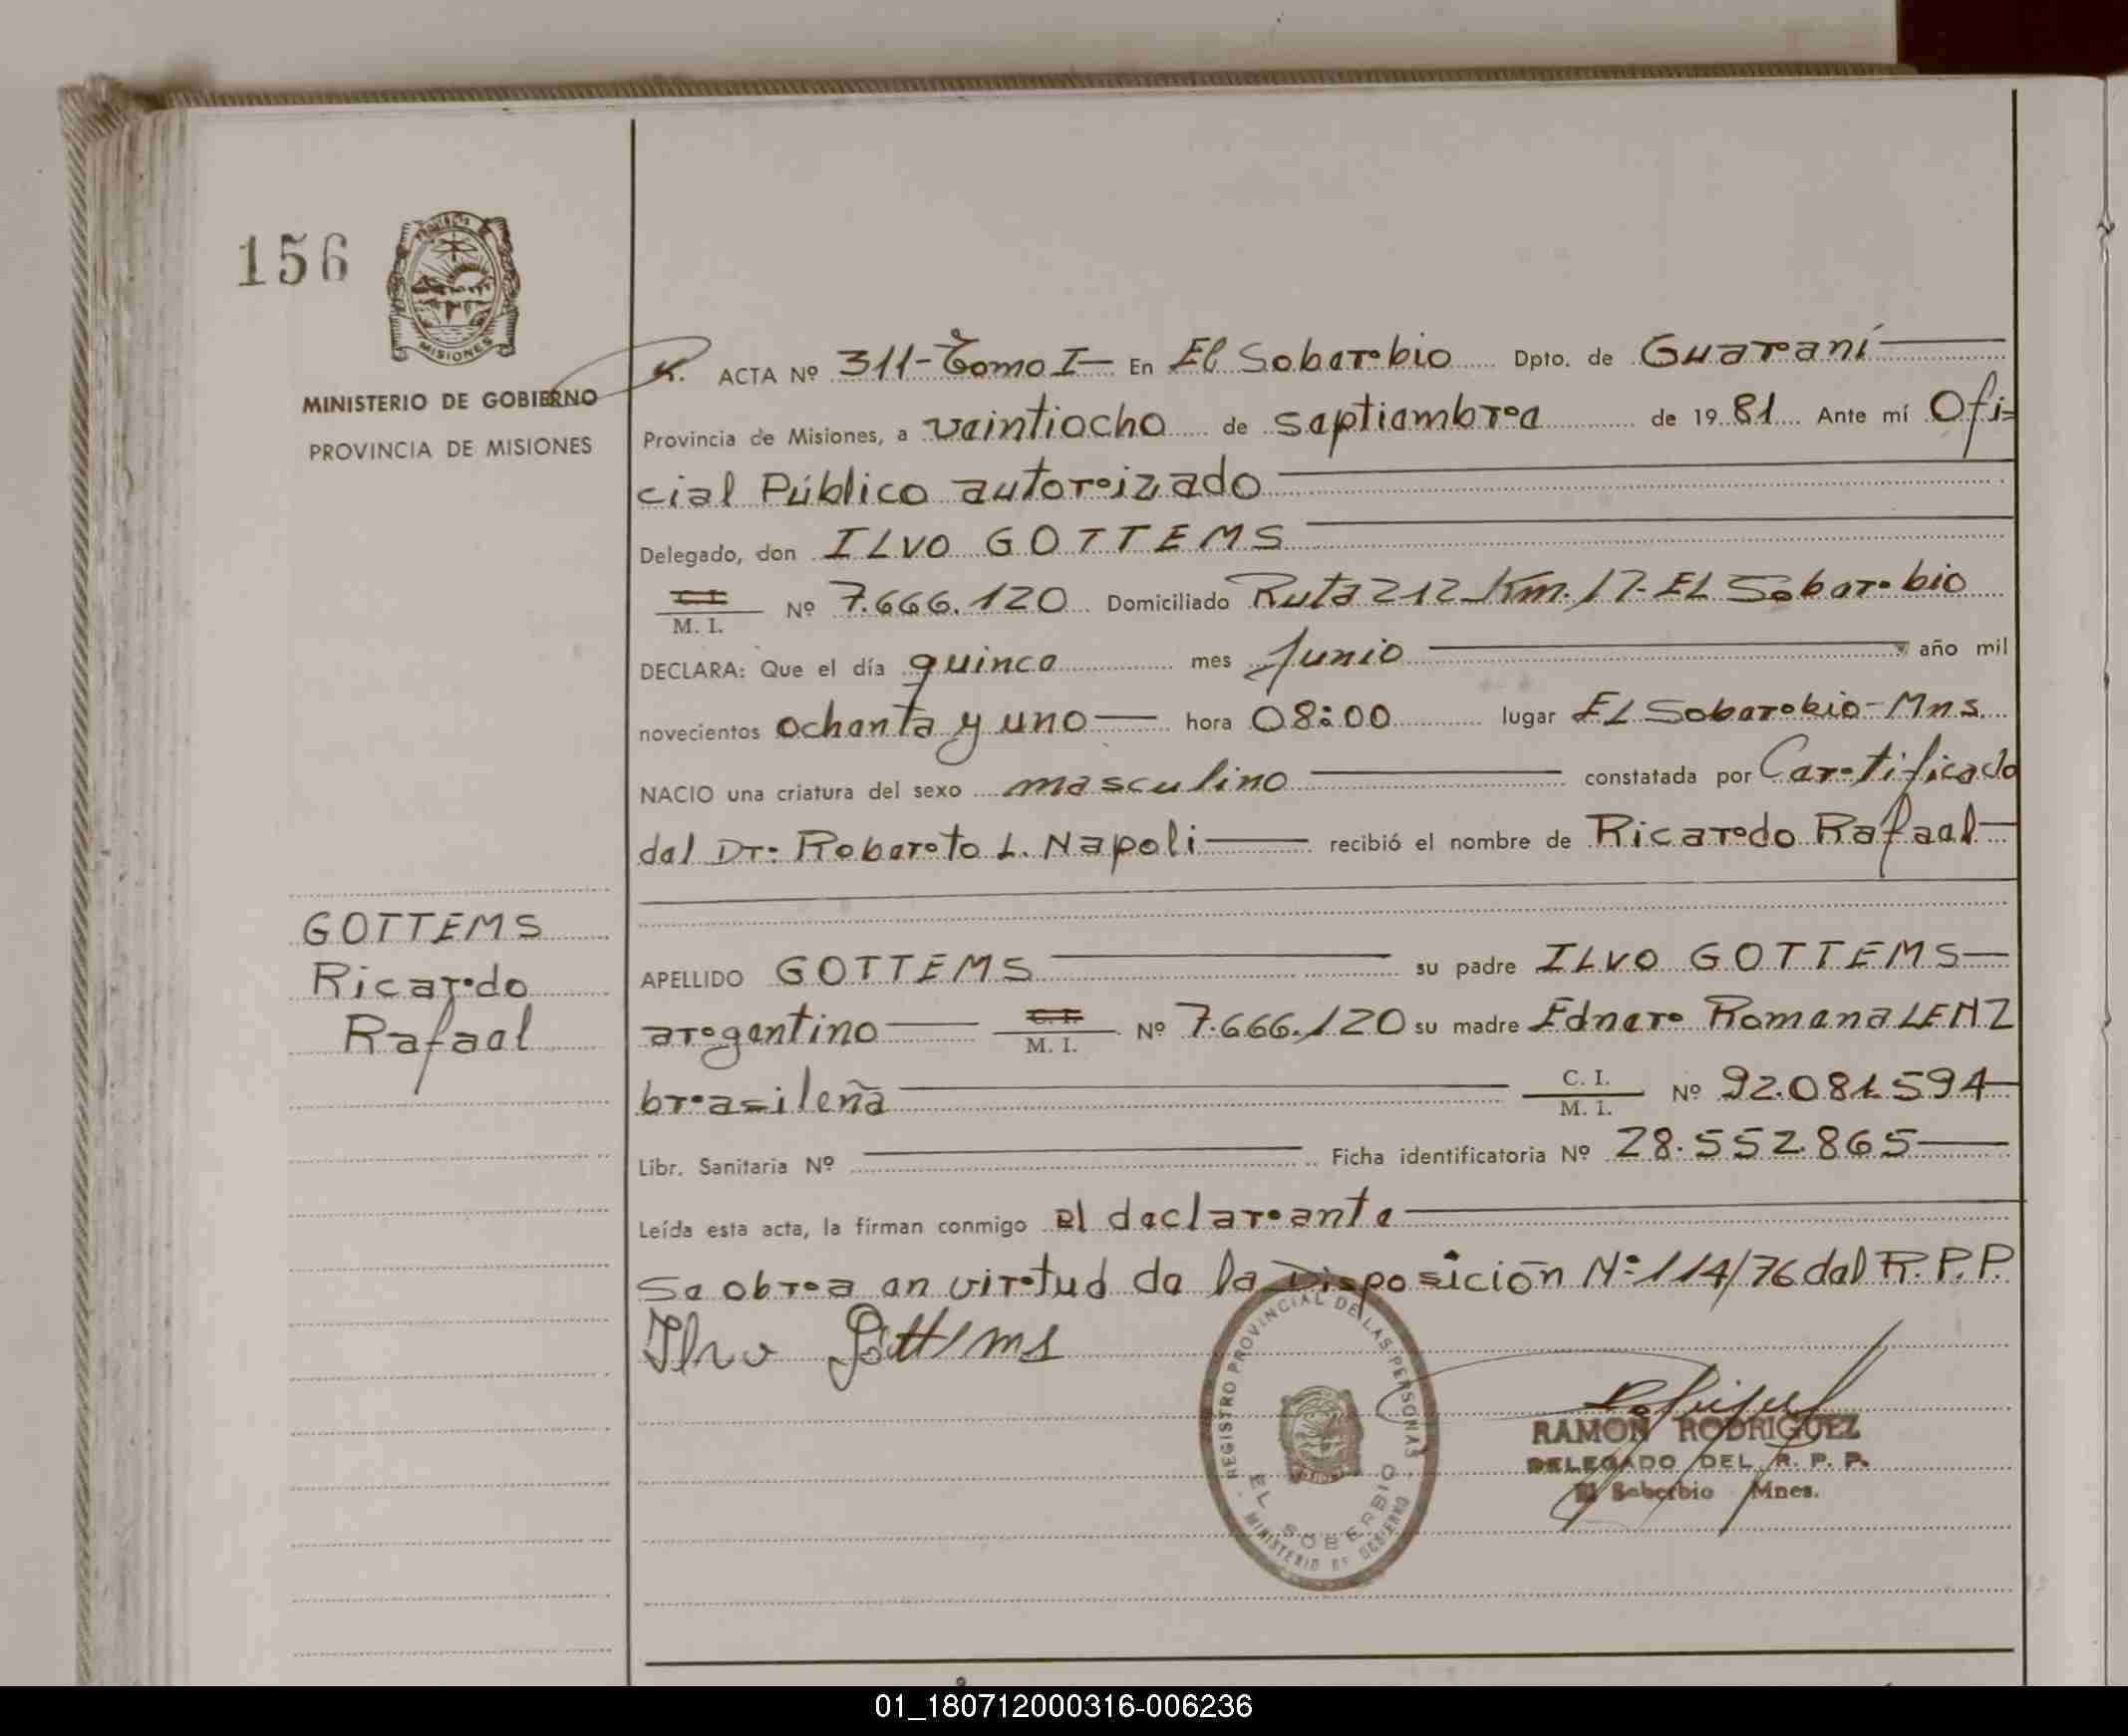 156
MISIONES
MINISTERIO DE GOBIERNO
PROVINCIA DE MISIONES
GOTTEMS
Ricardo
Rafael
R. ACTA Nº 311-Tomo I- En El Soberbio Dpto. de Guaraní
Provincia de Misiones, a veintiocho de septiembre de 19 81 Ante mí Ofi=
cial Público autorizado
Delegado, don ILVO GOTTEMS
C. I.
M. I. Nº 7.666.120 Domiciliado Ruta 212 Km. 17-EL Soberbio
DECLARA: Que el día quince mes Junio año mil
novecientos ochenta y uno hora 08:00 lugar EL Soberbio-Mns.
NACIO una criatura del sexo masculino constatada por Certificado
del Dr: Roberto L. Napoli recibió el nombre de Ricardo Rafael
APELLIDO GOTTEMS su padre ILVO GOTTEMS
argentino C. I. / M. I. Nº 7.666.120 su madre Edner Romena LENZ
brasileña C. I. / M. I. Nº 92.081.594
Libr. Sanitaria Nº Ficha identificatoria Nº 28.552.865
Leída esta acta, la firman conmigo el declarante
Se obra en virtud de la Disposición Nº 114/76 del R.P.P.
Ilvo Gottems
REGISTRO PROVINCIAL DE LAS PERSONAS
EL SOBERBIO
MINISTERIO DE GOBIERNO
RAMON RODRIGUEZ
DELEGADO DEL R. P. P.
El Soberbio Mnes.
01_180712000316-006236